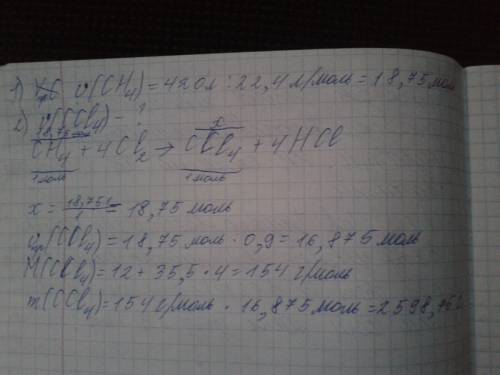 1) ν(CH₄) = 420л : 22,4 л/моль = 18,75 моль
2) ν(CCl₄) - ?
18,75 моль x
CH₄ + 4Cl₂ → CCl₄ + 4HCl
1 моль 1 моль
x = 18,75·1 / 1 = 18,75 моль
νпр(CCl₄) = 18,75 моль · 0,9 = 16,875 моль
M(CCl₄) = 12 + 35,5 · 4 = 154 г/моль
m(CCl₄) = 154 г/моль · 16,875 моль = 2598,75